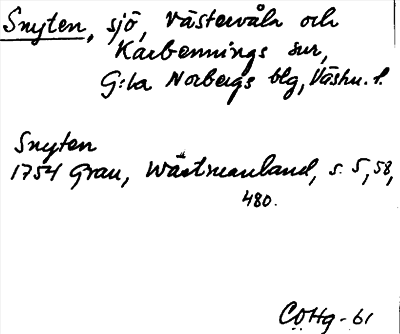 Snyten, sjö, Västervåla och
Karbennings snr,
G:la Norbergs blg, Västm. l.
Snyten
1754 Grau, Wästmanland, s. 5, 58,
480.
COHg - 61